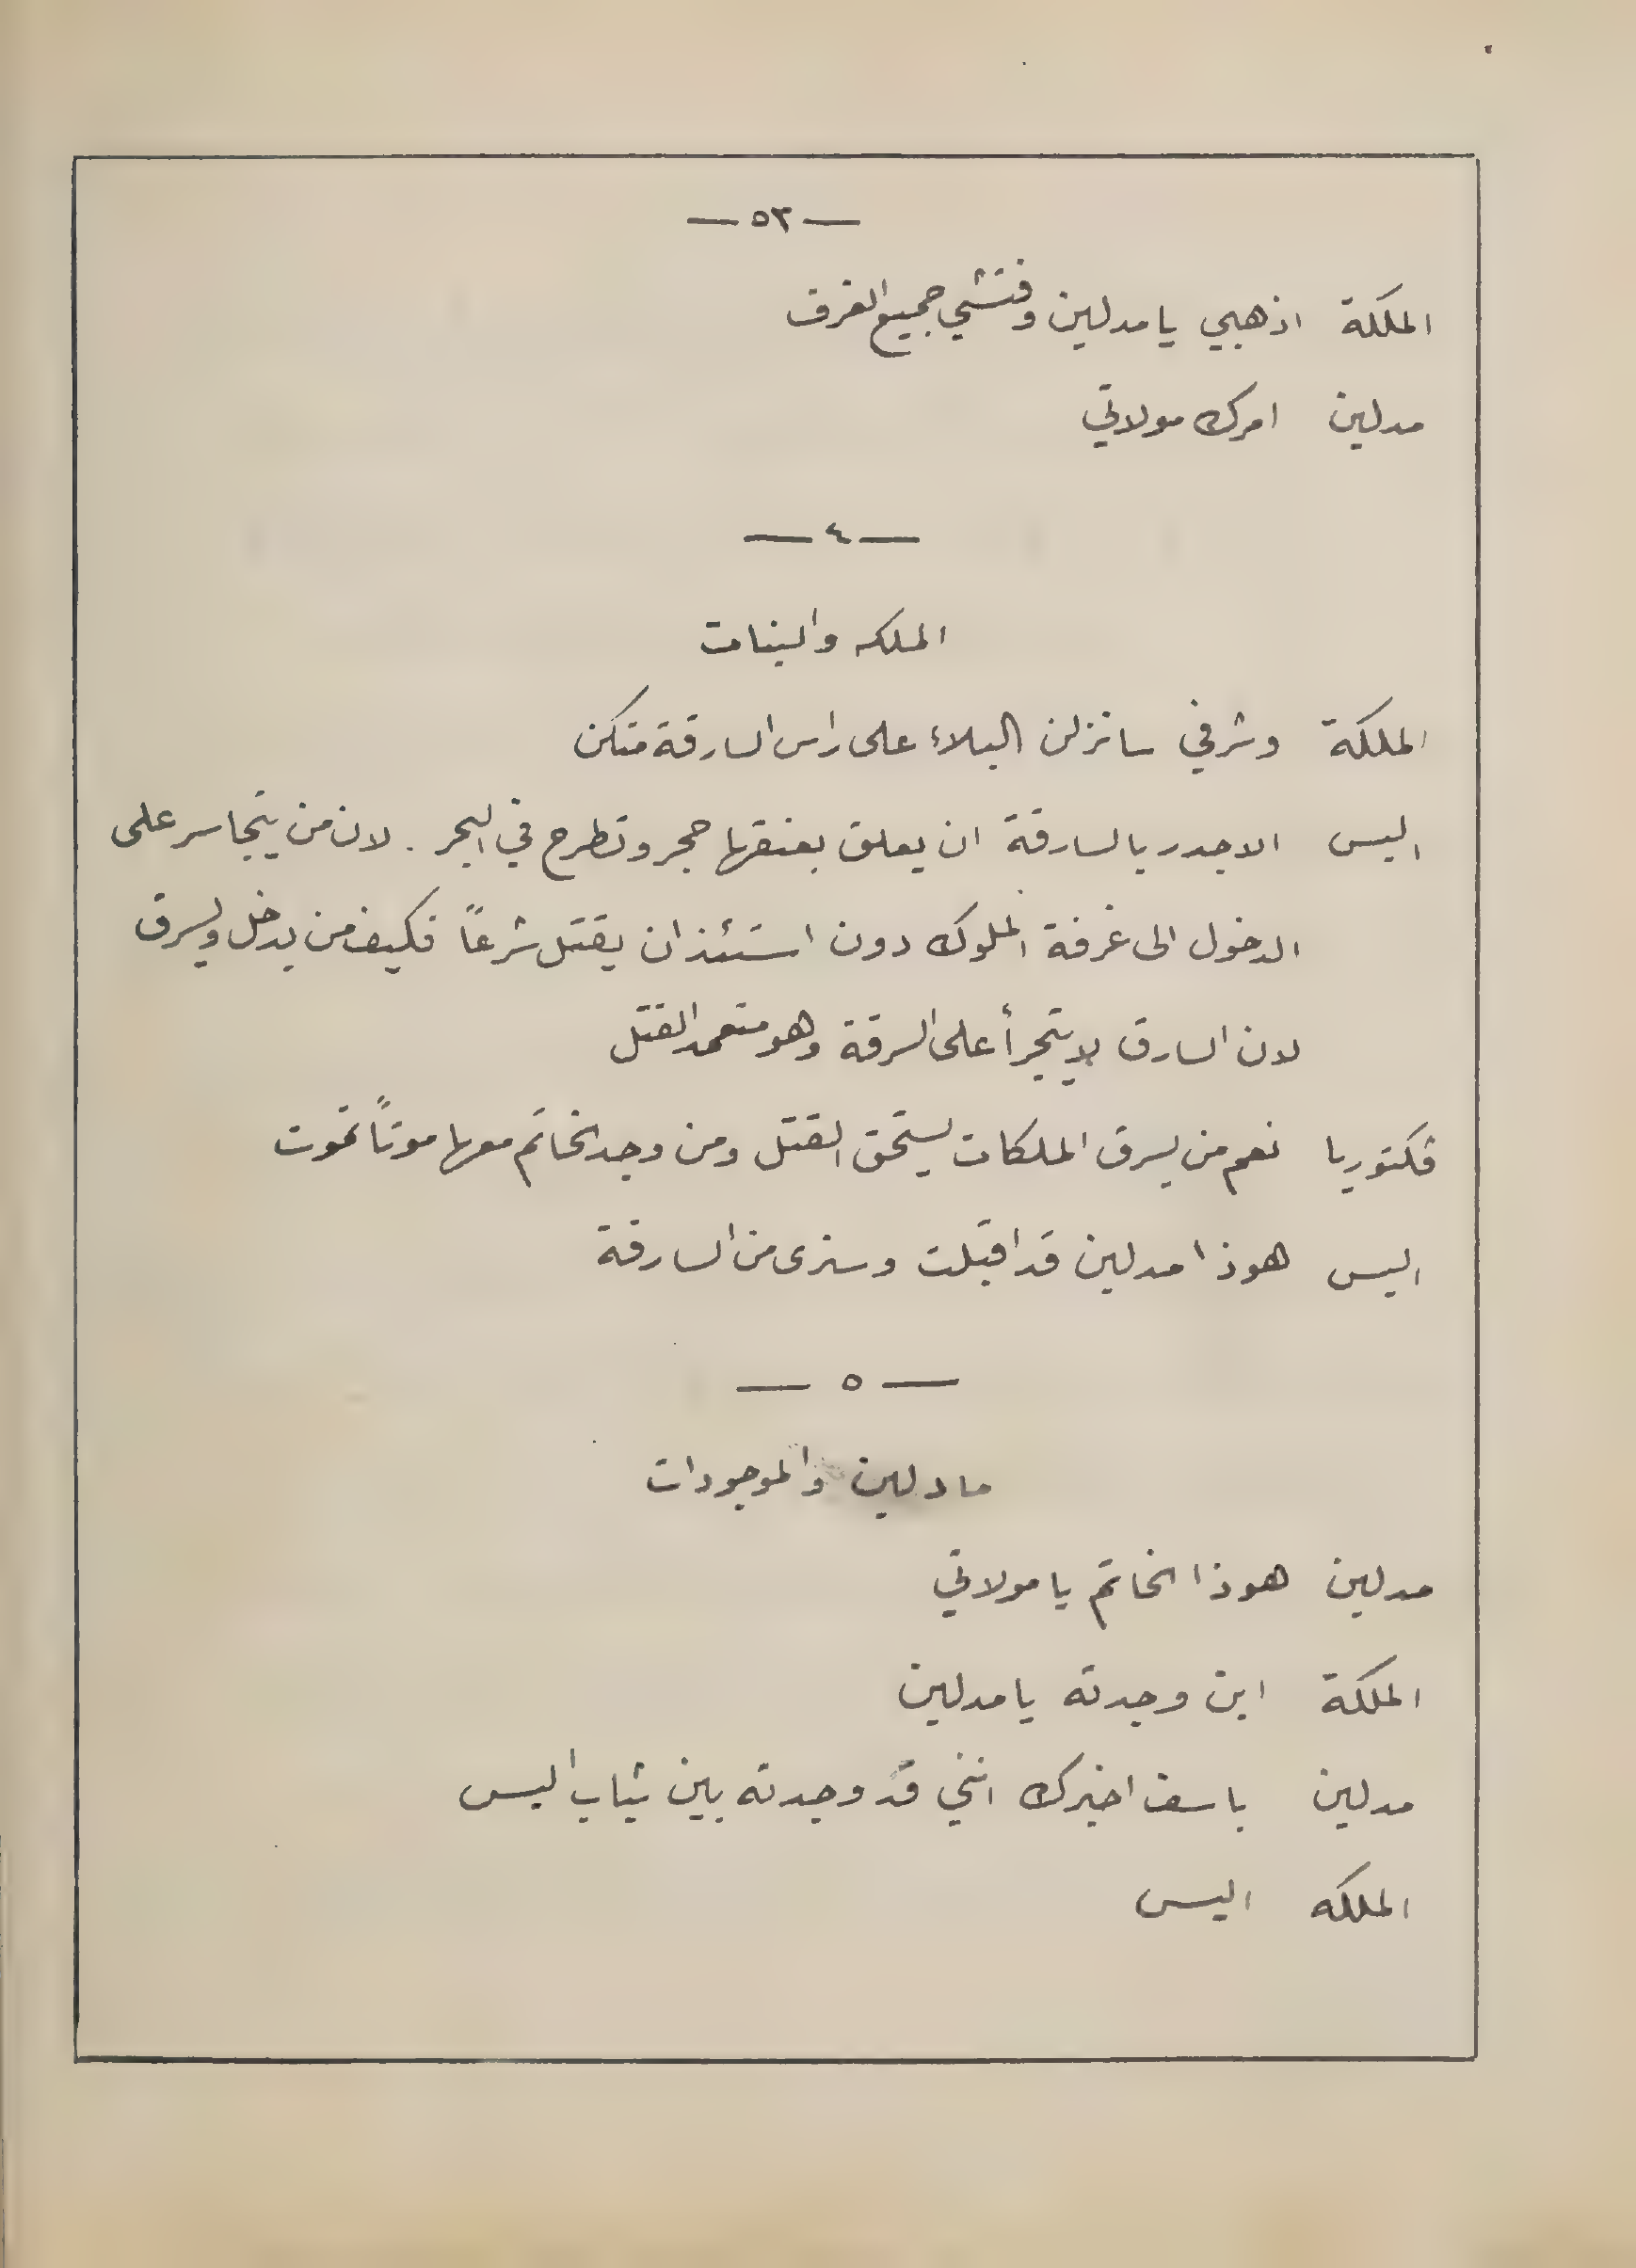 — ٥٣ —
الملكة اذهبي يا مدلين وفتشي جميع الغرف
مدلين امرك مولاتي
— ٤ —
الملكه والبنات
الملكة وشرفي سانزلن البلاء على راس السارقة منكن
اليس الاجدر بالسارقة ان يعلق بعنقها حجر وتطرح في البحر . لان من يتجاسر على
الدخول الى غرفة الملوك دون استئذان يقتل شرعاً فكيف من يدخل ويسرق
لان السارق لا يتجرأ على السرقة وهو متعمد القتل
فكتوريا نعم من يسرق الملكات يستحق القتل ومن وجد الخاتم معها موتاً تموت
اليس هوذا مدلين قد اقبلت وسنرى من السارقة
— ٥ —
مادلين والموجودات
مدلين هوذا الخاتم يا مولاتي
الملكة اين وجدته يا مدلين
مدلين باسف اخبرك انني قد وجدته بين ثياب اليس
الملكه اليس